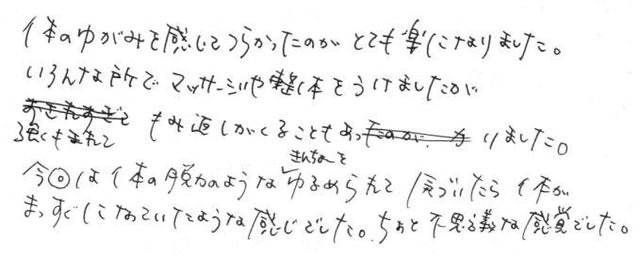 体のゆがみを感じてつらかったのが とても楽になりました。
いろんな所で マッサージや整体をうけましたが
強くもまれて もみ返しがくることもあ りました。
きんちょーを
今回は体の脱力のような ゆるめられて 気づいたら 体が
まっすぐになっていたような感じでした。ちょっと不思議な感覚でした。